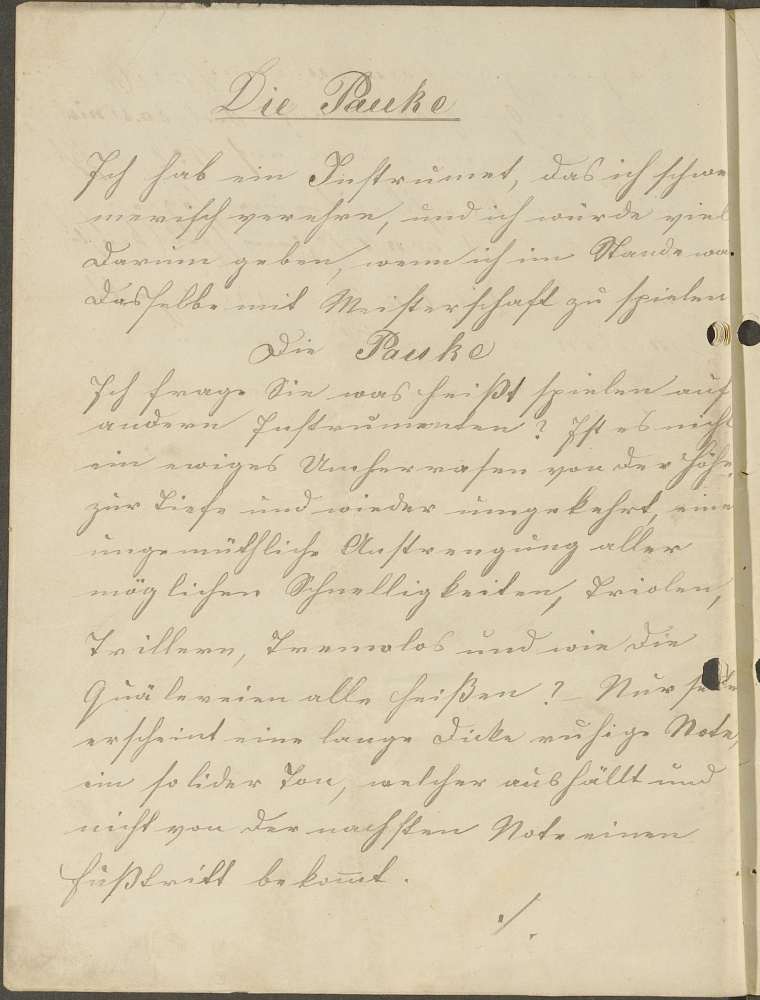 Die Pauke
Ich hab ein Instrumet, das ich schwe
merisch verehre, und ich würde viel
darum geben, wenn ich im Stande wa
dasselbe mit Meisterschaft zu spielen
Die Pauke
Ich frage Sie was heißt spielen auf
andern Instrumenten? Ist es nicht
ein ewiges Umherrasen von der Höhe
zur Tiefe und wieder umgekehrt, eine
ungemüthliche Anstrengung aller
möglichen Schnelligkeiten, Triolen,
Trillern, Tremolos und wie die
Quälereien alle heißen? – Nur selten
erscheint eine lange dicke ruhige Note,
ein solider Ton, welcher aushällt und
nicht von der nachsten Note einen
Fußtritt bekom̅t.
./.